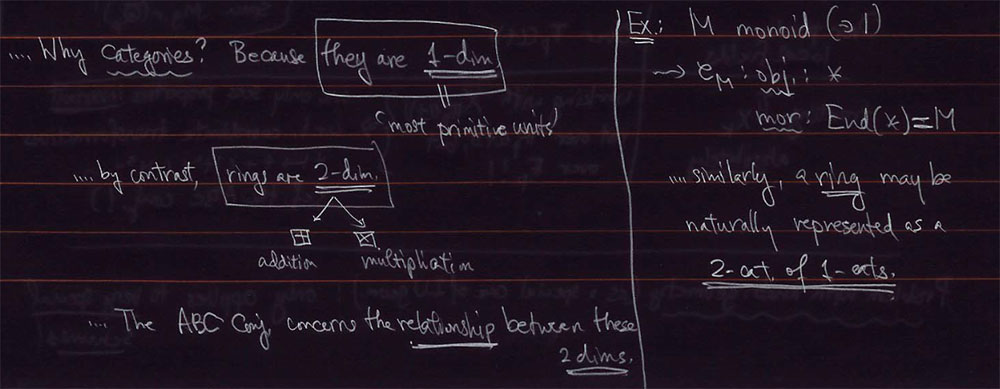 .... Why Categories? Because they are 1-dim.
"most primitive units"
.... by contrast, rings are 2-dim.
⊞ ⊠
addition multiplication
.... The ABC Conj. concerns the relationship between these
2 dims.
Ex.: M monoid (∋1)
⇝ C_M : obj.: *
mor: End(*)=M
.... similarly, a ring may be
naturally represented as a
2-cat. of 1-cats.